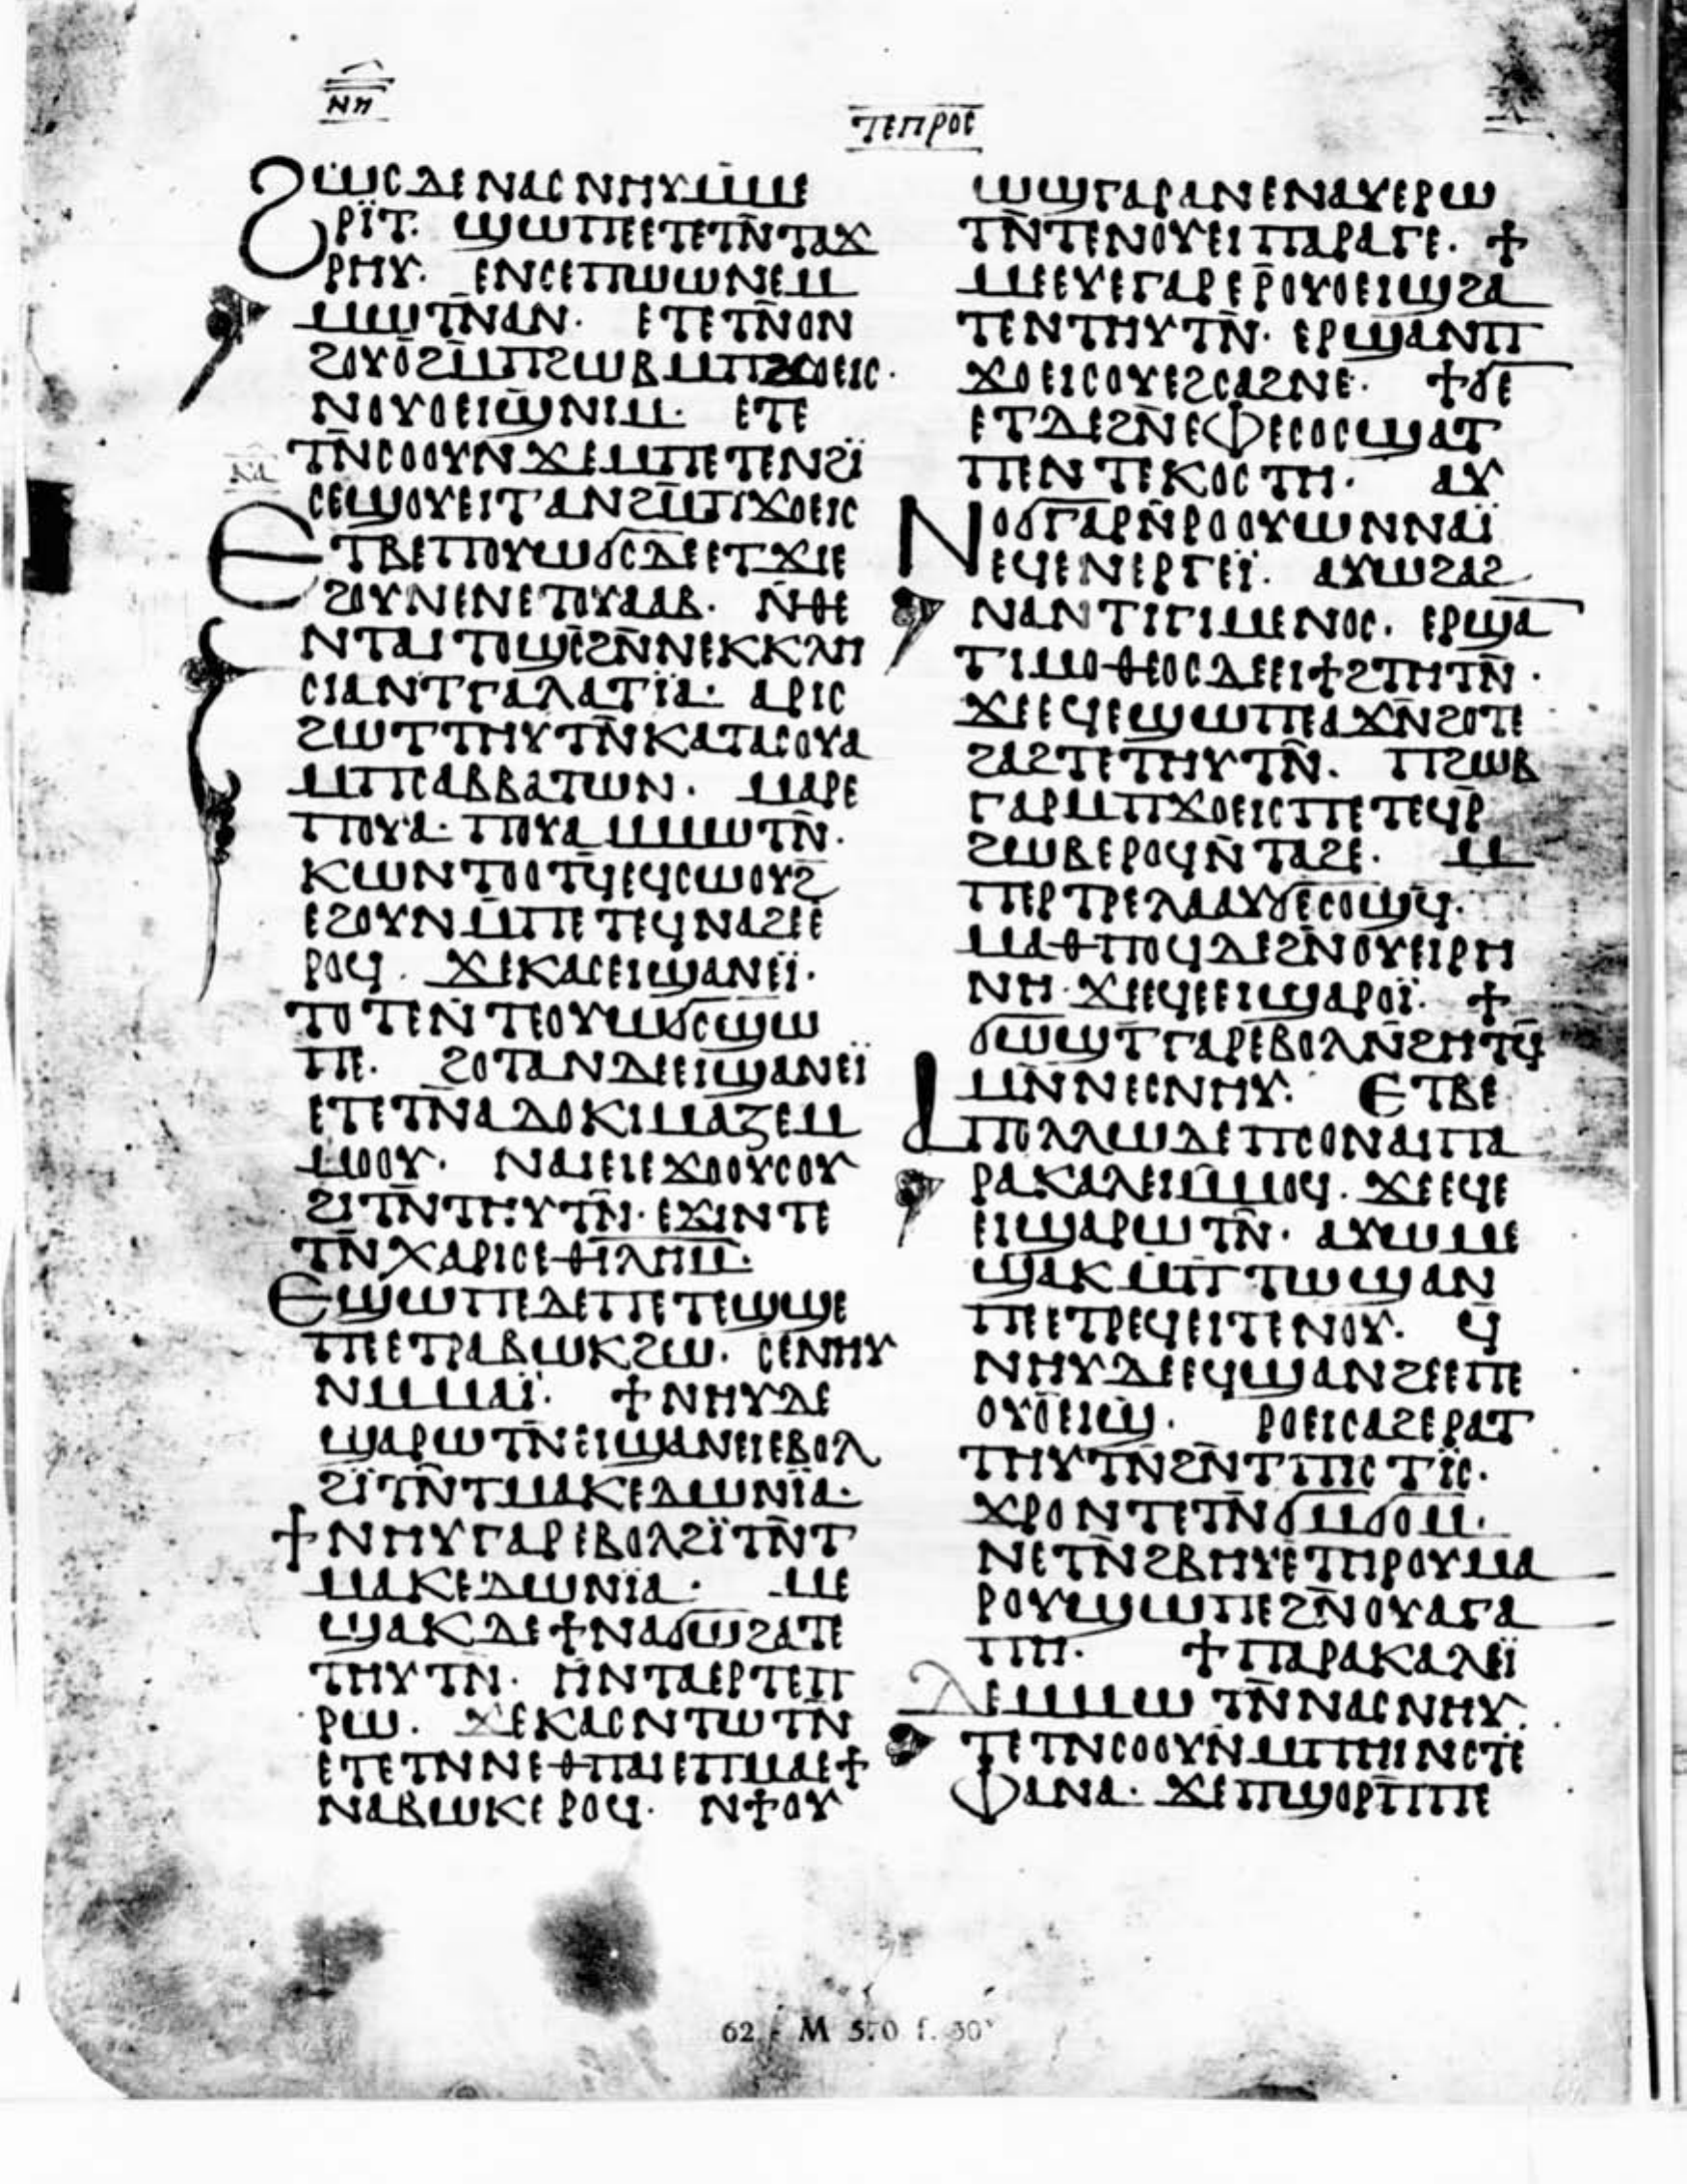 ⲛⲏ
ⲧⲉⲡⲣⲟⲥ
ϩⲱⲥⲇⲉⲛⲁⲥⲛⲏⲩⲙⲙⲉ
ⲣⲓ̈ⲧ. ϣⲱⲡⲉⲉⲧⲉⲧⲛ̄ⲧⲁϫ
ⲣⲏⲩ. ⲉⲛⲥⲉⲡⲱⲱⲛⲉⲙ
ⲙⲱⲧⲛ̄ⲁⲛ. ⲉⲧⲉⲧⲛ̄ⲟⲛ
ϩⲟⲩⲟ̄ϩⲙ̄ⲡϩⲱⲃⲙⲡϫⲟⲉⲓⲥ.
ⲛⲟⲩⲟⲉⲓϣⲛⲓⲙ. ⲉⲧⲉ
ⲧⲛ̄ⲥⲟⲟⲩⲛϫⲉⲙⲡⲉⲧⲉⲛϩⲓ̈
ⲕⲁ
ⲥⲉϣⲟⲩⲉⲓⲧ'ⲁⲛϩⲙ̄ⲡϫⲟⲉⲓⲥ
ⲉⲧⲃⲉⲡⲟⲩⲱϭⲥⲇⲉⲉⲧϫⲓⲉ
ϩⲟⲩⲛⲉⲛⲉⲧⲟⲩⲁⲁⲃ. ⲛ̄ⲑⲉ
ⲛⲧⲁⲓⲧⲟϣⲥ̄ϩⲛ̄ⲛⲉⲕⲕⲗⲏ
ⲥⲓⲁⲛⲧⲅⲁⲗⲁⲧⲓ̈ⲁ. ⲁⲣⲓⲥ
ϩⲱⲧⲧⲏⲩⲧⲛ̄ⲕⲁⲧⲁⲥⲟⲩⲁ
ⲙⲡⲥⲁⲃⲃⲁⲧⲱⲛ. ⲙⲁⲣⲉ
ⲡⲟⲩⲁ. ⲡⲟⲩⲁⲙⲙⲱⲧⲛ̄.
ⲕⲱⲛⲧⲟⲟⲧϥⲉϥⲥⲱⲟⲩϩ
ⲉϩⲟⲩⲛⲙ̄ⲡⲉⲧⲉϥⲛⲁϩⲉⲉ̄
ⲣⲟϥ. ϫⲉⲕⲁⲥⲉⲓϣⲁⲛⲉⲓ̈.
ⲧⲟⲧⲉⲛ̄ⲧⲉⲟⲩⲱϭⲥϣⲱ
ⲡⲉ. ϩⲟⲧⲁⲛⲇⲉⲉⲓϣⲁⲛⲉⲓ̈
ⲉⲧⲉⲧⲛⲁⲇⲟⲕⲓⲙⲁⲍⲉⲙ
ⲙⲟⲟⲩ. ⲛⲁⲓⲉⲓⲉϫⲟⲟⲩⲥⲟⲩ
ϩⲓⲧⲛ̄ⲧⲏⲩⲧⲛ̄. ⲉϫⲓⲛⲧⲉ
ⲧⲛ̄ⲭⲁⲣⲓⲥⲉⲑⲓⲗⲏⲙ.
ⲉϣⲱⲡⲉⲇⲉⲡⲉⲧⲉϣϣⲉ
ⲡⲉⲉⲧⲣⲁⲃⲱⲕϩⲱ. ⲥⲉⲛⲏⲩ
ⲛⲙⲙⲁⲓ̈. ϯⲛⲏⲩⲇⲉ
ϣⲁⲣⲱⲧⲛ̄ⲉⲓϣⲁⲛⲉⲓⲉⲃⲟⲗ
ϩⲓ̈ⲧⲛ̄ⲧⲙⲁⲕⲉⲇⲱⲛⲓ̈ⲁ.
ϯⲛⲏⲩⲅⲁⲣⲉⲃⲟⲗϩⲓ̈ⲧⲛ̄ⲧ
ⲙⲁⲕⲉⲇⲱⲛⲓⲁ. ⲙⲉ
ϣⲁⲕⲇⲉϯⲛⲁϭⲱϩⲁⲧⲉ
ⲧⲏⲩⲧⲛ̄. ⲏⲛⲧⲁⲉⲣⲧⲉⲡ
ⲣⲱ. ϫⲉⲕⲁⲥⲛⲧⲱⲧⲛ̄
ⲉⲧⲉⲧⲛⲛⲉⲑⲡⲁⲓⲉⲡⲙⲁⲉϯ
ⲛⲁⲃⲱⲕⲉⲣⲟϥ. ⲛϯⲟⲩ
ⲱϣⲅⲁⲣⲁⲛⲉⲛⲁⲩⲉⲣⲱ
ⲧⲛ̄ⲧⲉⲛⲟⲩⲉⲓⲡⲁⲣⲁⲅⲉ. ϯ
ⲙⲉⲉⲩⲉⲅⲁⲣⲉⲣ̄ⲟⲩⲟⲉⲓϣϩⲁ
ⲧⲉⲛⲧⲏⲩⲧⲛ̄. ⲉⲣϣⲁⲛⲡ
ϫⲟⲉⲓⲥⲟⲩⲉϩⲥⲁϩⲛⲉ. ϯϭⲉ
ⲉⲧⲇⲉϩⲛ̄ⲉⲫⲉⲥⲟⲥϣⲁⲧ
ⲡⲉⲛⲧⲉⲕⲟⲥⲧⲏ. ⲁⲩ
ⲛⲟϭⲅⲁⲣⲛ̄ⲣⲟⲟⲩⲱⲛⲛⲁⲓ̈
ⲉϥⲉⲛⲉⲣⲅⲉⲓ̈. ⲁⲩⲱϩⲁϩ
ⲛⲁⲛⲧⲓⲅⲓⲙⲉⲛⲟⲥ. ⲉⲣϣⲁ
ⲧⲓⲙⲟⲑⲉⲟⲥⲇⲉⲉⲓϯϩⲧⲏⲧⲛ̄.
ϫⲉⲉϥⲉϣⲱⲡⲉⲁϫⲛ̄ϩⲟⲧⲉ
ϩⲁϩⲧⲉⲧⲏⲩⲧⲛ̄. ⲡϩⲱⲃ
ⲅⲁⲣⲙⲡϫⲟⲉⲓⲥⲡⲉⲧⲉϥⲣ̄
ϩⲱⲃⲉⲣⲟϥⲛ̄ⲧⲁϩⲉ. ⲙ
ⲡⲉⲣⲧⲣⲉⲗⲁⲁⲩϭⲉⲥⲟϣϥ.
ⲙⲁⲑⲡⲟϥⲇⲉϩⲛ̄ⲟⲩⲉⲓⲣⲏ
ⲛⲏ. ϫⲉⲉϥⲉⲉⲓϣⲁⲣⲟⲓ̈. ϯ
ϭⲱϣⲧⲅⲁⲣⲉⲃⲟⲗⲛ̄ϩⲏⲧϥ̄
ⲙⲛ̄ⲛⲉⲥⲛⲏⲩ. ⲉⲧⲃⲉ
ⲁⲡⲟⲗⲗⲱⲇⲉⲡⲥⲟⲛⲁⲓⲡⲁ
ⲣⲁⲕⲁⲗⲉⲓⲙⲙⲟϥ. ϫⲉⲉϥⲉ
ⲉⲓϣⲁⲣⲱⲧⲛ̄. ⲁⲩⲱⲙⲉ
ϣⲁⲕⲙ̄ⲡⲧⲱϣⲁⲛ
ⲡⲉⲉⲧⲣⲉϥⲉⲓⲧⲉⲛⲟⲩ. ϥ
ⲛⲏⲩⲇⲉⲉϥϣⲁⲛϩⲉⲉⲡⲉ
ⲟⲩⲟ̄ⲉⲓϣ. ⲣⲟⲉⲓⲥⲁϩⲉⲣⲁⲧ
ⲧⲏⲩⲧⲛ̄ϩⲛ̄ⲧⲡⲓⲥⲧⲓ̈ⲥ.
ϫⲣⲟⲛⲧⲉⲧⲛ̄ϭⲙϭⲟⲙ.
ⲛⲉⲧⲛ̄ϩⲃⲏⲩⲉ̄ⲧⲏⲣⲟⲩⲙⲁ
ⲣⲟⲩϣⲱⲡⲉϩⲛ̄ⲟⲩⲁⲅⲁ
ⲡⲏ. ϯⲡⲁⲣⲁⲕⲁⲗⲉⲓ̈
ⲇⲉⲙⲙⲱⲧⲛ̄ⲛⲁⲥⲛⲏⲩ.
ⲧⲉⲧⲛⲥⲟⲟⲩⲛⲙⲡⲏⲓⲛⲥⲧⲉ
ⲫⲁⲛⲁ. ϫⲉⲡϣⲟⲣⲡ̄ⲡⲉ
62 - M 570 f. 30ᵛ